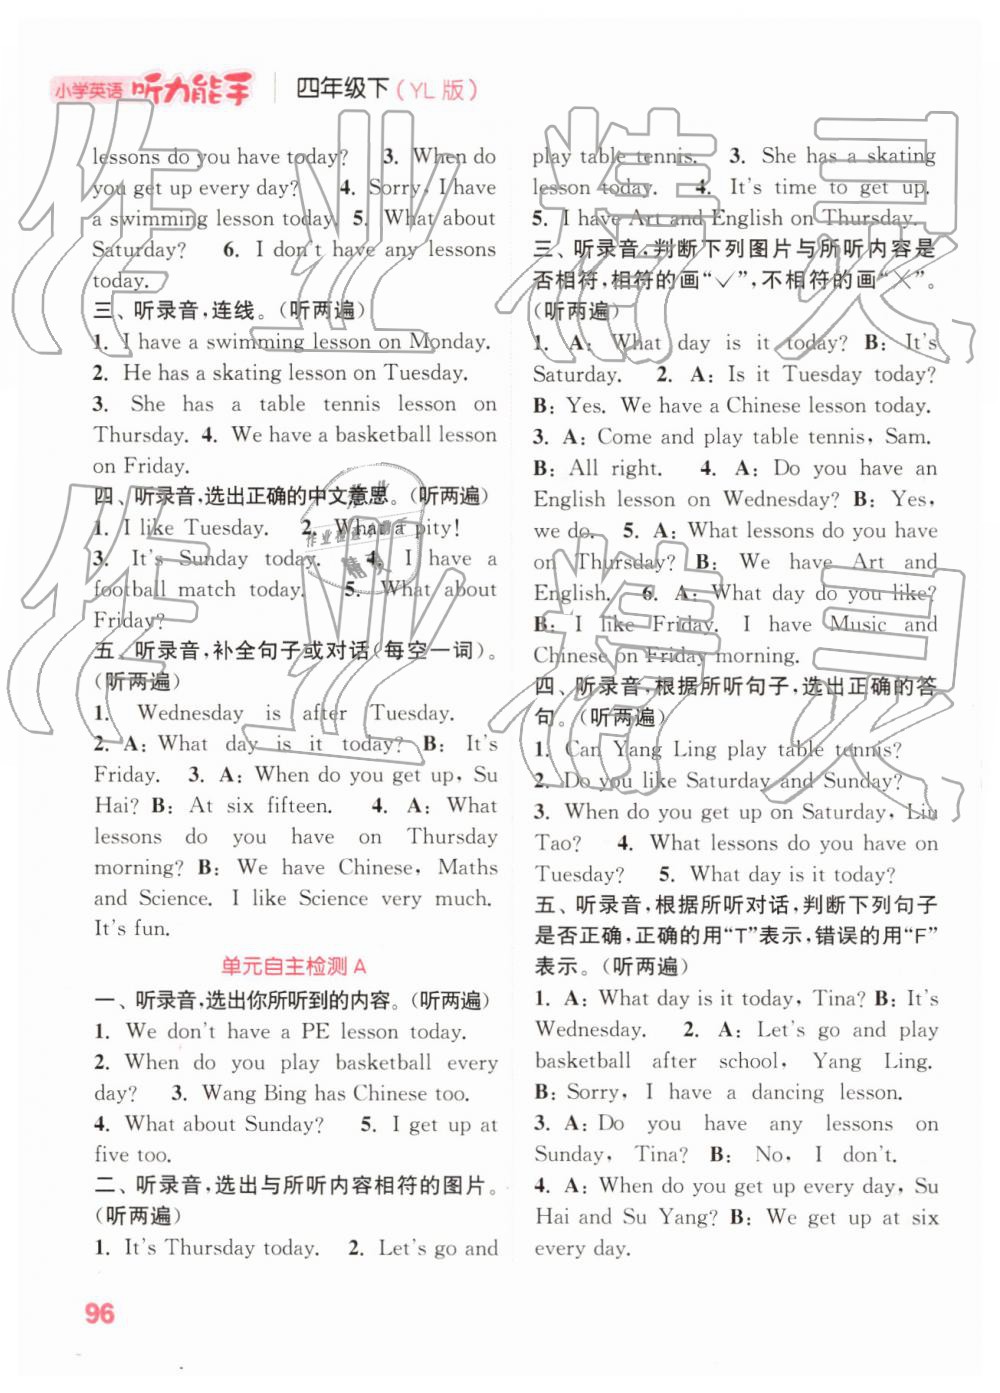 小学英语 听力能手 四年级下（YL 版）
lessons do you have today? 3. When do
you get up every day? 4. Sorry, I have
a swimming lesson today. 5. What about
Saturday? 6. I don't have any lessons
today.
三、听录音,连线。(听两遍)
1. I have a swimming lesson on Monday.
2. He has a skating lesson on Tuesday.
3. She has a table tennis lesson on
Thursday. 4. We have a basketball lesson
on Friday.
四、听录音,选出正确的中文意思。(听两遍)
1. I like Tuesday. 2. What a pity!
3. It's Sunday today. 4. I have a
football match today. 5. What about
Friday?
五、听录音,补全句子或对话(每空一词)。
(听两遍)
1. Wednesday is after Tuesday.
2. A: What day is it today? B: It's
Friday. 3. A: When do you get up, Su
Hai? B: At six fifteen. 4. A: What
lessons do you have on Thursday
morning? B: We have Chinese, Maths
and Science. I like Science very much.
It's fun.
单元自主检测 A
一、听录音,选出你所听到的内容。(听两遍)
1. We don't have a PE lesson today.
2. When do you play basketball every
day? 3. Wang Bing has Chinese too.
4. What about Sunday? 5. I get up at
five too.
二、听录音,选出与所听内容相符的图片。
(听两遍)
1. It's Thursday today. 2. Let's go and
play table tennis. 3. She has a skating
lesson today. 4. It's time to get up.
5. I have Art and English on Thursday.
三、听录音,判断下列图片与所听内容是
否相符,相符的画“✓”,不相符的画“×”。
(听两遍)
1. A: What day is it today? B: It's
Saturday. 2. A: Is it Tuesday today?
B: Yes. We have a Chinese lesson today.
3. A: Come and play table tennis, Sam.
B: All right. 4. A: Do you have an
English lesson on Wednesday? B: Yes,
we do. 5. A: What lessons do you have
on Thursday? B: We have Art and
English. 6. A: What day do you like?
B: I like Friday. I have Music and
Chinese on Friday morning.
四、听录音,根据所听句子,选出正确的答
句。(听两遍)
1. Can Yang Ling play table tennis?
2. Do you like Saturday and Sunday?
3. When do you get up on Saturday, Liu
Tao? 4. What lessons do you have on
Tuesday? 5. What day is it today?
五、听录音,根据所听对话,判断下列句子
是否正确,正确的用“T”表示,错误的用“F”
表示。(听两遍)
1. A: What day is it today, Tina? B: It's
Wednesday. 2. A: Let's go and play
basketball after school, Yang Ling.
B: Sorry, I have a dancing lesson.
3. A: Do you have any lessons on
Sunday, Tina? B: No, I don't.
4. A: When do you get up every day, Su
Hai and Su Yang? B: We get up at six
every day.
96
作业精灵
作业精灵